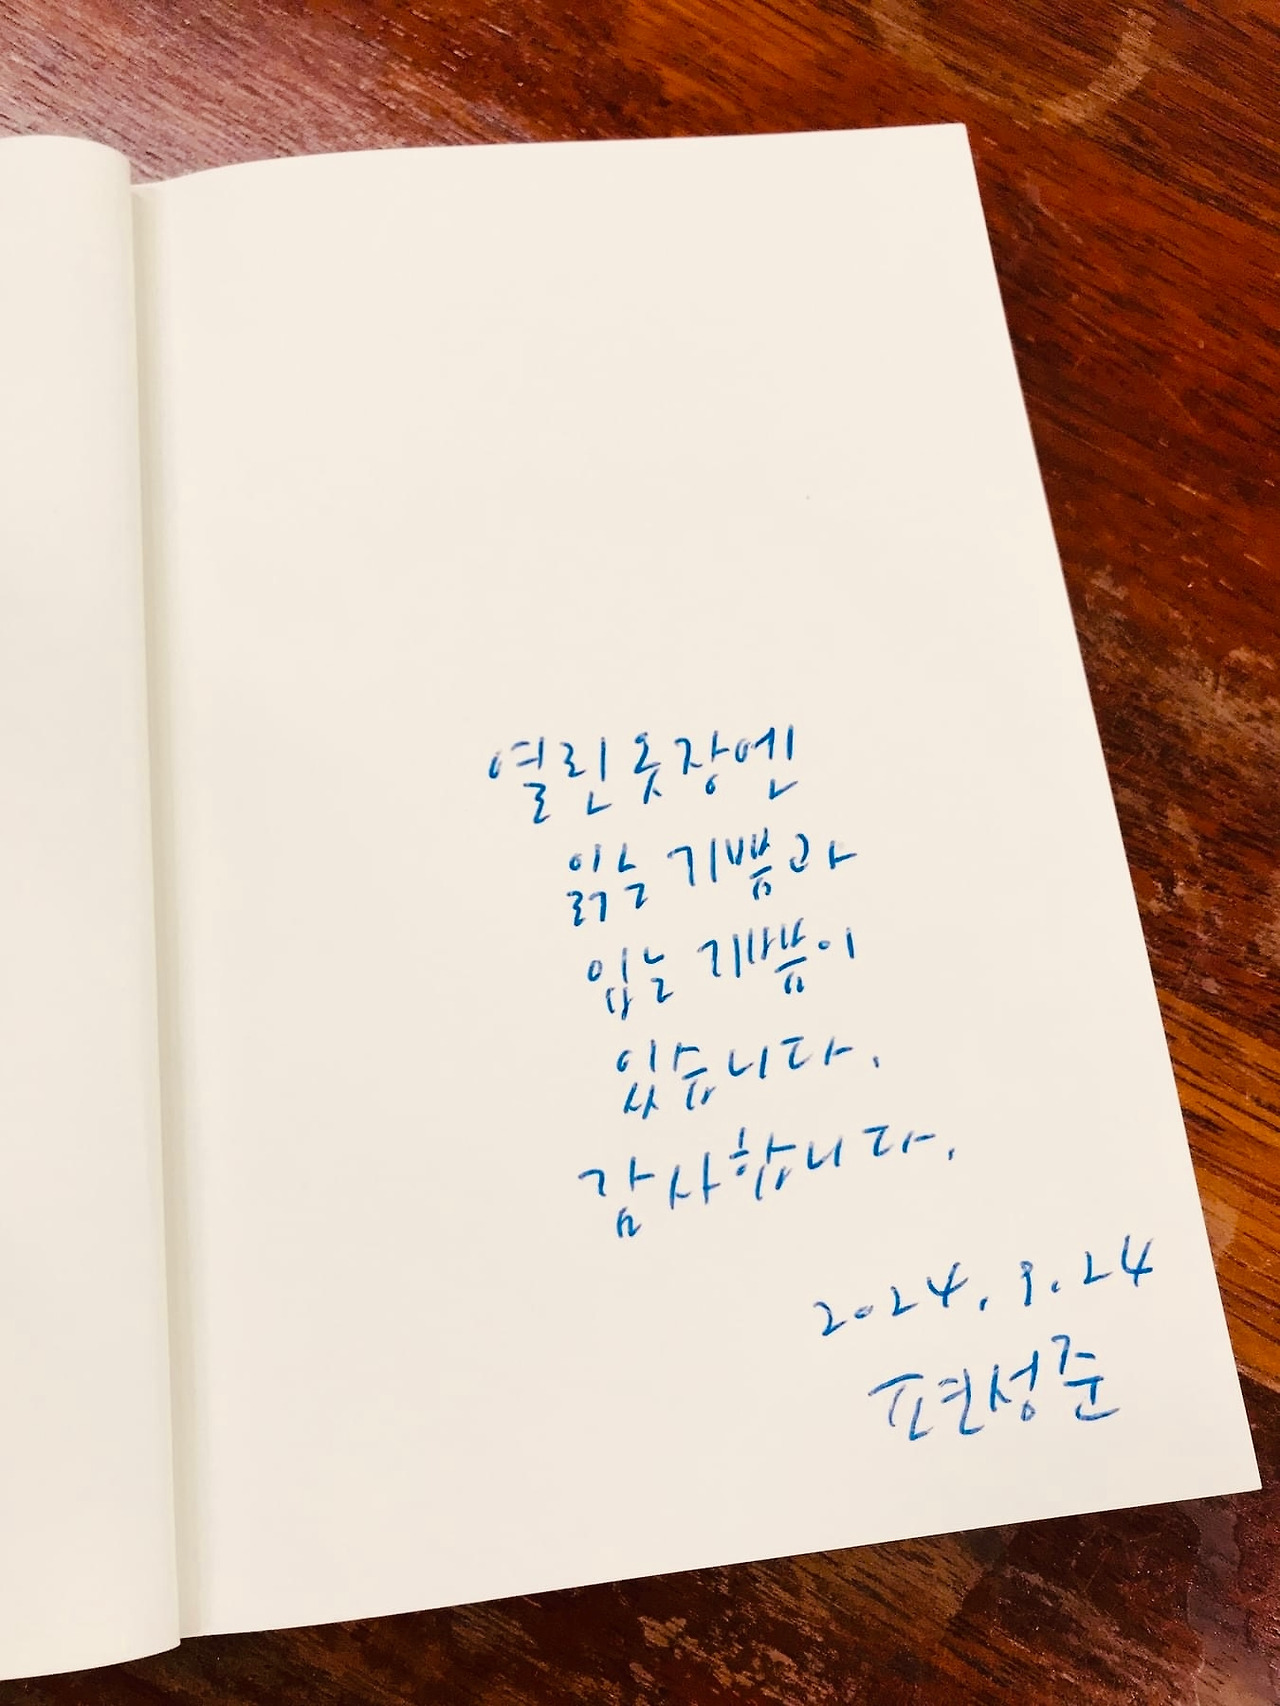 열린옷장엔
읽는 기쁨과
입는 기쁨이
있습니다.
감사합니다.
2024. 9. 24
표현성준